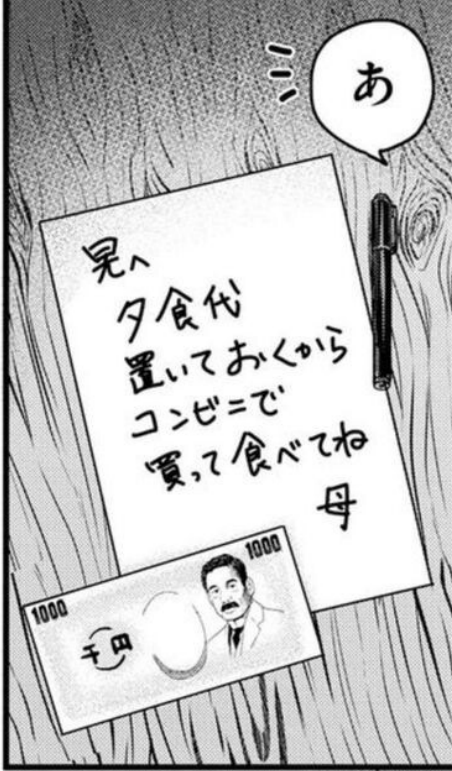 あ
晃へ
夕食代
置いておくから
コンビニで
買って食べてね
母
1000
1000
千円